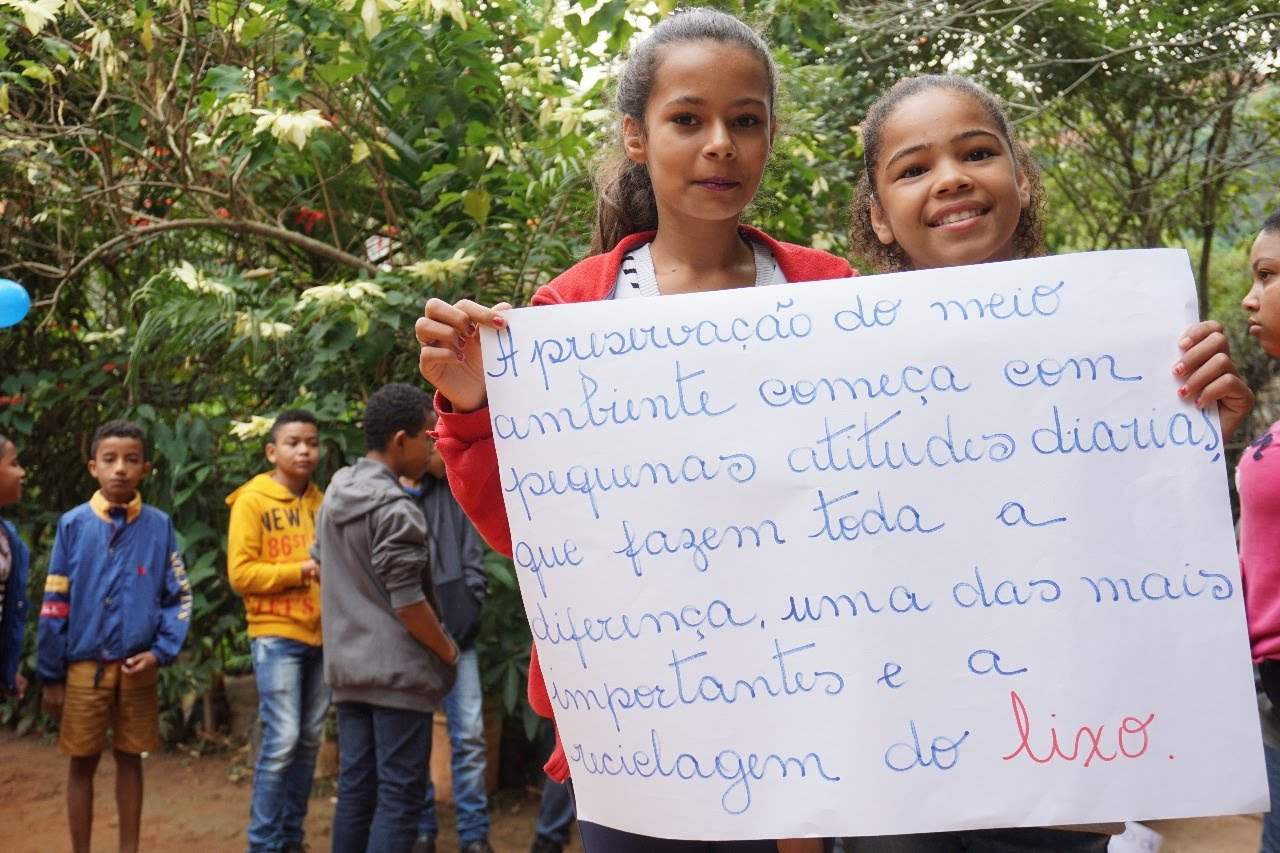 A preservação do meio
ambiente começa com
pequenas atitudes diarias,
que fazem toda a
diferença, uma das mais
importantes e a
reciclagem do lixo.
NEW
86ST